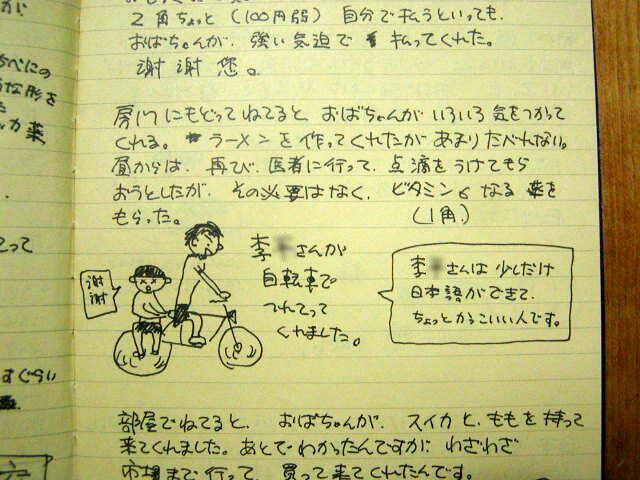 2角ちょっと（100円弱）自分で払うといっても、
おばちゃんが、強い気迫で払ってくれた。
谢谢您。
房にもどってねてると、おばちゃんがいろいろ気をつかって
くれる。ラーメンを作ってくれたがあまりたべれない。
昼からは、再び、医者に行って、点滴をうけてもら
おうとしたが、その必要はなく、ビタミンCなる薬を
もらった。
（1角。）
李 さんが
自転車で
つれてって
くれました。
谢
谢
李 さんは 少しだけ
日本語ができて、
ちょっとかっこいい人です。
部屋でねてると、おばちゃんが、スイカと、ももを持って
来てくれました。あとでわかったんですが わざわざ
市場まで行って、買って来てくれたんです。
べにの
な形を
カ薬
てって
すぐらい